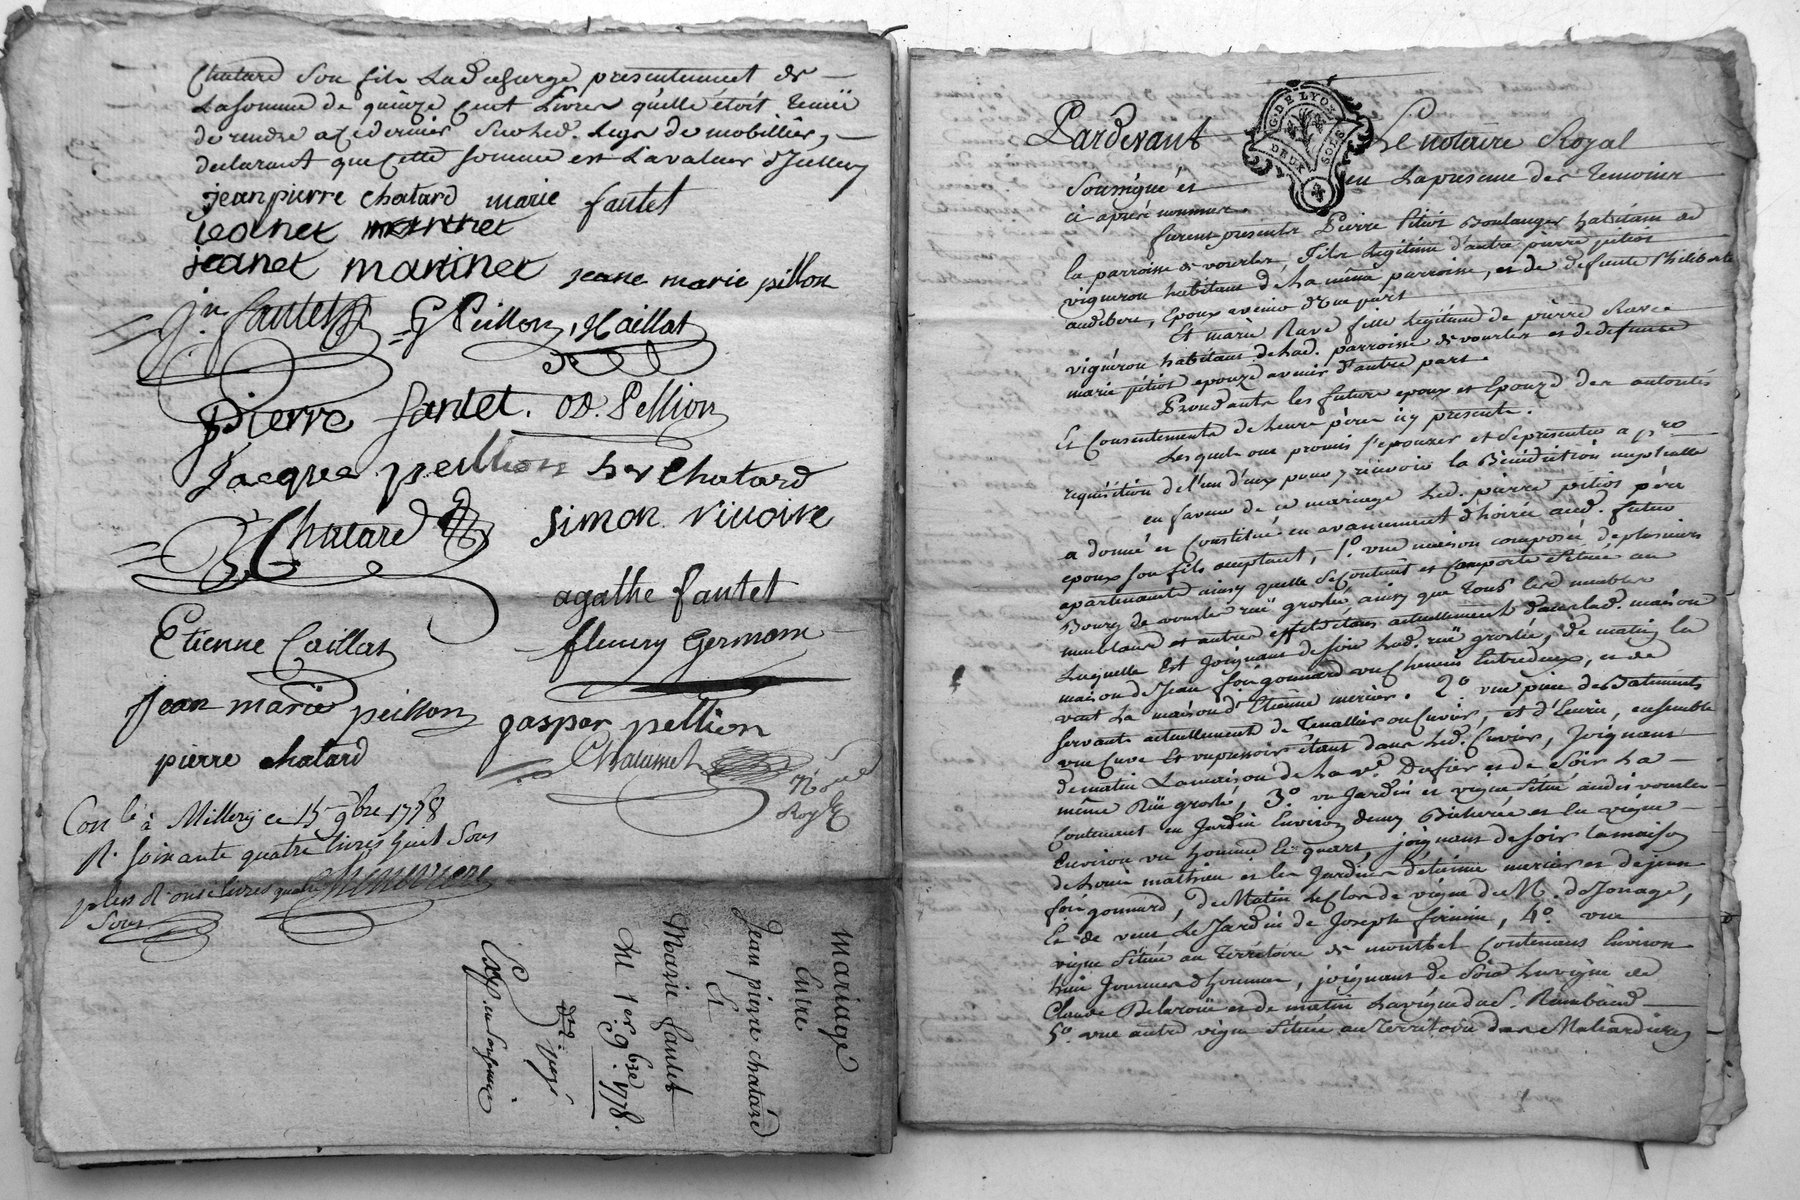 Chatard son fils La decharge presentement de
La somme de quinze cent Livres qu'elle étoit tenüe
de rendre a ce dernier Led. Legs de mobilliers,
declarant que cette somme est La valeur d'Iceluy
jean pierre chatard marie fantet
jeanet martinet
jeanet martinet jeane marie pillon
jn. fantet G Peillon, Caillat
pierre fantet. Pellion
Jacque peillion her Chatard
Chatard simon vivoire
agathe fantet
Etienne Caillat fleury Germain
jean marie peillon gaspar pellion
pierre chatard Chaumet
Nre
Royl
Conlé à Millery ce 15 9bre 1778
R. soixante quatre livres huit sous
plus R. onse livres quatre
sous
mariage
Entre
Jean pierre chatard
Et
Marie fantet
du 1er 9bre 1778.
Exp. en
G. DE LYON
DEUX SOLS
Pardevant Le notaire Royal
Soussigné et en La presence des temoins
ci après nommés.
furent presents Pierre Pitiot Boulanger habitant de
la parroisse de vourles, fils Legitime d'autre pierre pitiot
vigneron habitant de La même parroisse, et de defunte Philiberte
audibert, Epoux avenir d'une part
Et marie Rave fille Légitime de pierre Rave
vigneron habitant de Lad. parroisse de vourles et de defunte
marie pitiot epouze avenir d'autre part.
Procedants les futurs epoux et Epouze des autorités
Et Consentements de Leurs pères icy presents.
Lesquels ont promis s'epouzer et se presenter a pre
requisition de l'un d'eux pour y recevoir la Bénédiction nuptialle
en faveur de ce mariage Led. pierre pitiot père
a donné et Constitué en avancement d'hoirie aud. futur
epoux son fils acceptant, 1o. une maison composée de plusieurs
apartements ainsy quelle se Contient et Comporte Située au
Bourg de vourle rüe groslée, ainsy que tous les meubles
meublants et autres effets étans actuellement dans lad. maison
Laquelle est Joignant de soir Lad. rue groslée, de matin la
maison de Jean foigonnard un Chemin Entredeux, et de
vent La maison d'Etienne mercier. 2o. une piece de Batiments
servants actuellement de Tenallier ou Cuvier, et d'Ecurie, ensemble
une Cuve Et un pressoir étant dans Led. Cuvier, Joignant
de matin La maison de La ve. Dufier et de Soir La
même Rüe groslée, 3o. un Jardin et vigne Situé audit vourles
Contenant en Jardin Environ demy Bicherée et en vigne
Environ un homme Et quart, joignant de soir la maison
de mathieu et les Jardins d'étienne mercier et de jean
foigonnard, de Matin Le Clos de vigne de M. de Jonage,
Et de vent Le Jardin de Joseph, 4o. une
vigne Située au Territoire de montbel Contenant Environ
huit Journées d'hommes, joignant de Soir La vigne de
Claude Delaroüe et de matin La vigne du S. Rambaud
5o. une autre vigne Située au Territoire des Maliardieres